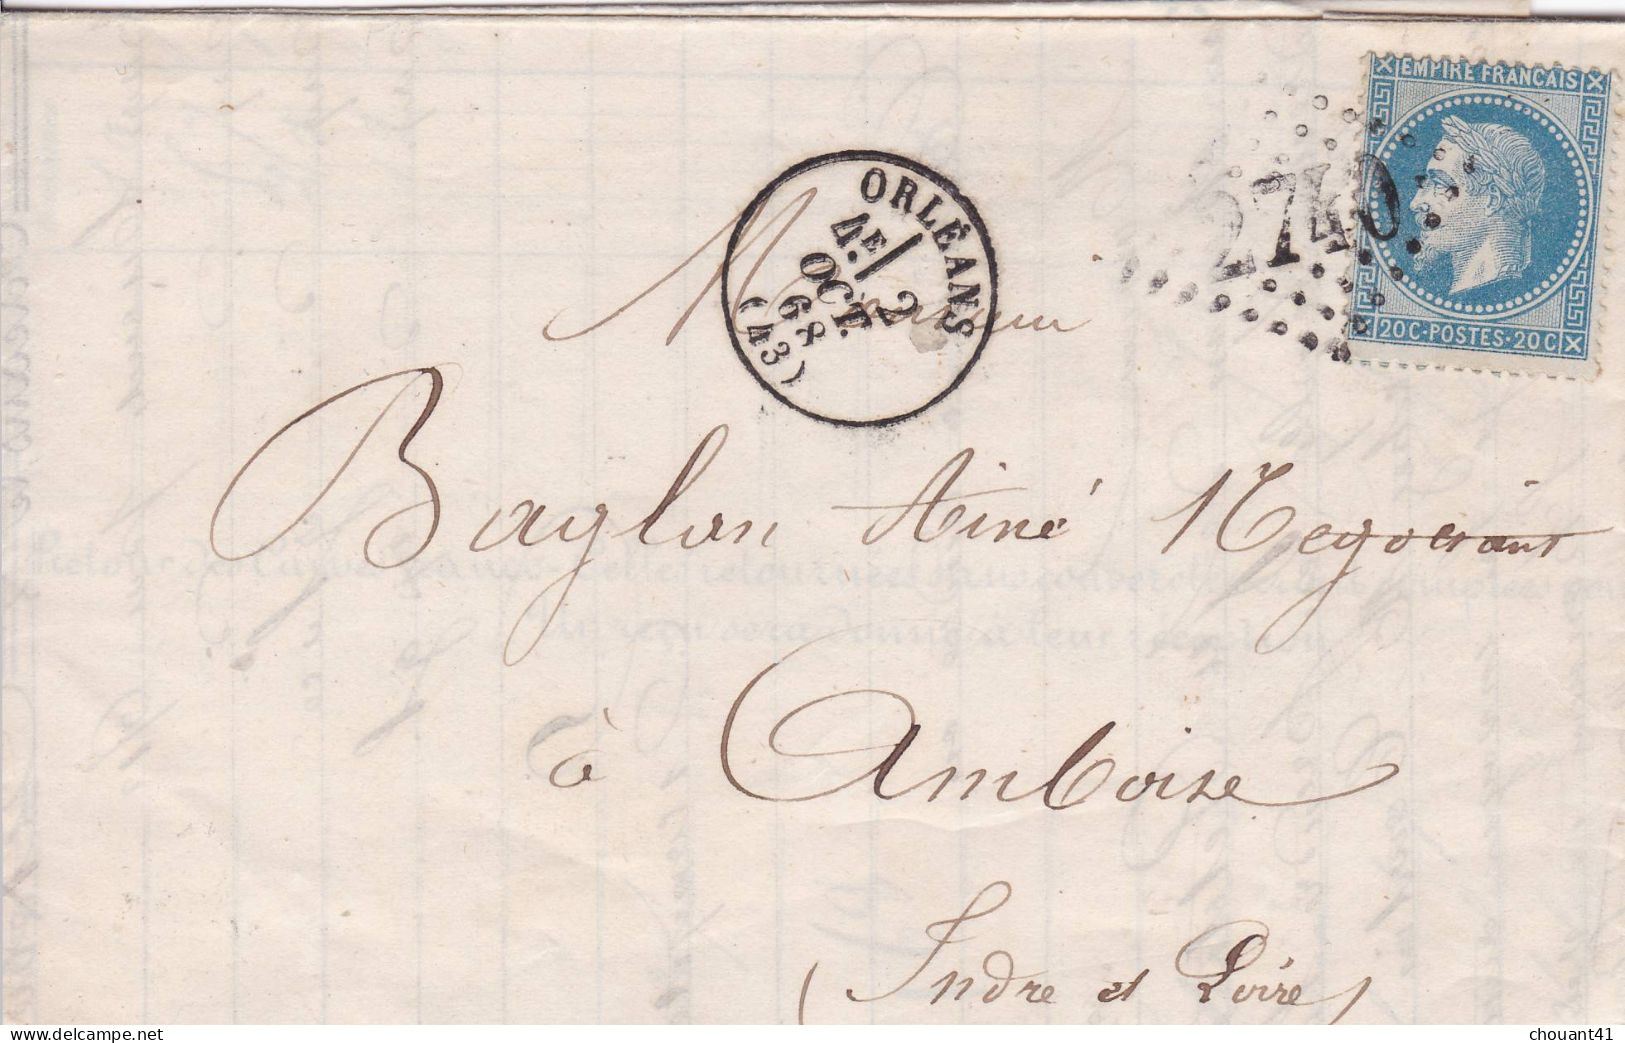 EMPIRE FRANCAIS
20C·POSTES·20C
2740
ORLÉANS
4E/ 2
OCT.
68
(43)
Monsieur
Baglan Ainé Negociant
à Amboise
(Indre et Loire)
www.delcampe.net
chouant41